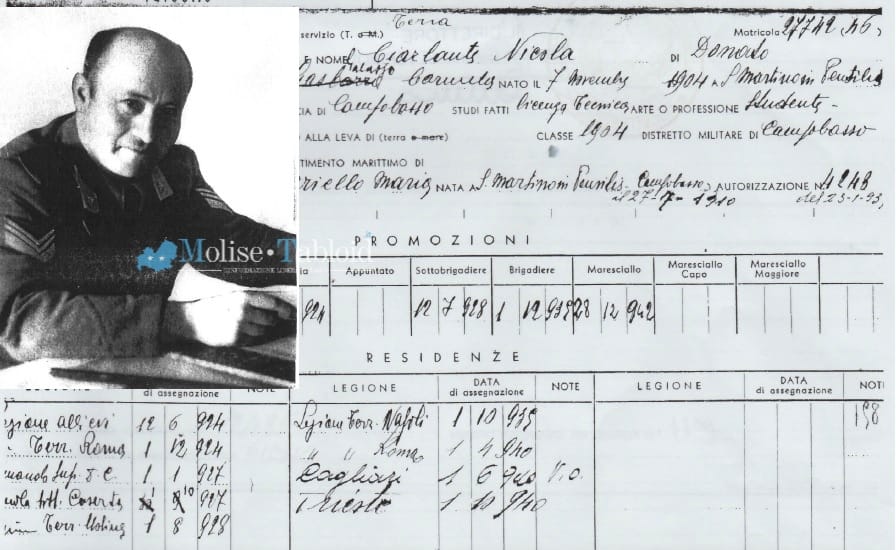 Terra
servizio (T. o M.) Matricola 27742 (46)
E NOME Ciarlante Nicola DI Donato
Palazzo Carmela NATO IL 7 Novembre 1904 a S. Martino in Pensilis
CIA DI Campobasso STUDI FATTI Licenza Tecnica ARTE O PROFESSIONE Studente
ALLA LEVA DI (terra o mare) CLASSE 1904 DISTRETTO MILITARE DI Campobasso
TIMENTO MARITTIMO DI
riello Maria NATA A S. Martino in Pensilis Campobasso AUTORIZZAZIONE N.
il 27-7-1910
Molise Tabloid
PROMOZIONI
ia Appuntato Sottobrigadiere Brigadiere Maresciallo Maresciallo Capo Maresciallo Maggiore
924 12 7 928 1 12 28 12 942
RESIDENZE
LEGIONE DATA di assegnazione NOTE LEGIONE DATA di assegnazione NOTE LEGIONE DATA di assegnazione NOTE
gione allievi 12 6 924 Legione Terr. Napoli 1 10
Terr. Roma 1 12 924 " " Roma 1 4 940
1 1 927 Cagliari 1 6 940
Caserta 927 Trieste 1 10 940
Terr. 1 8 928